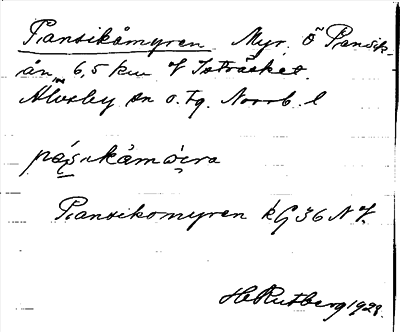 Pansikåmyren Myr, Ö Pansik-
ån, 6,5 km V Isträsket.
Älvsby sn o. tg. Norrb. l
Pansikomyren kG 36 NV.
HRutberg 1928.